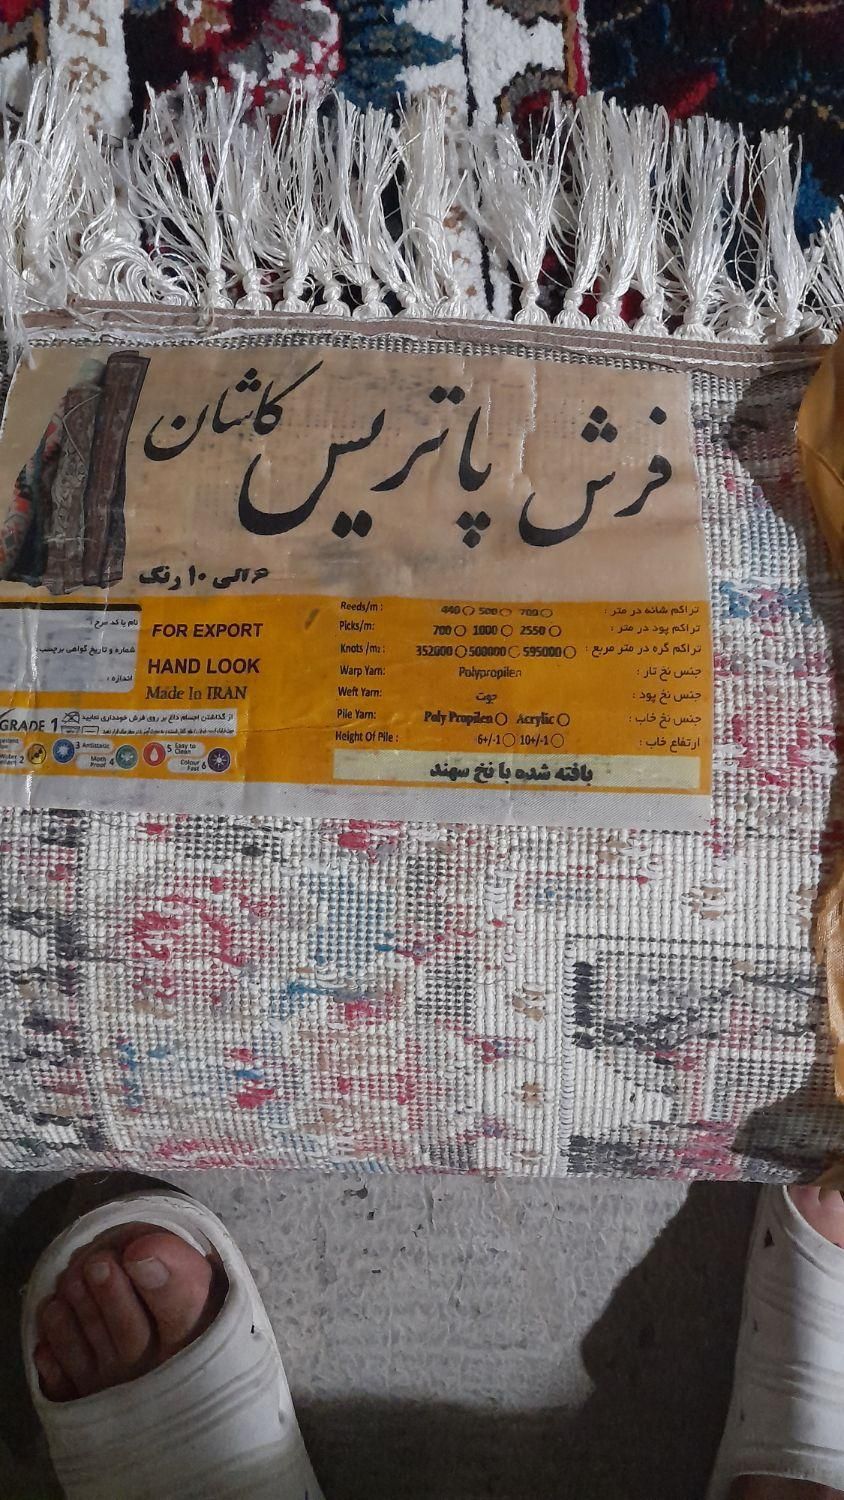 فرش پاتریس کاشان
۶ الی ۱۰ رنگ
نام یا کد طرح :
شماره و تاریخ گواهی برچسب:
اندازه :
FOR EXPORT
HAND LOOK
Made In IRAN
GRADE 1
از گذاشتن اجسام داغ بر روی فرش خودداری نمایید
2
3 Antistatic
Moth Proof 4
5 Easy to Clean
Colour Fast 6
Reeds/m : 440 500 700 تراکم شانه در متر :
Picks/m: 700 1000 2550 تراکم پود در متر :
Knots /m2 : 352000 500000 595000 تراکم گره در متر مربع :
Warp Yarn: Polypropilen جنس نخ تار :
Weft Yarn: جوت جنس نخ پود :
Pile Yarn: Poly Propilen Acrylic جنس نخ خاب :
Height Of Pile : 6+/-1 10+/-1 ارتفاع خاب :
بافته شده با نخ سهند